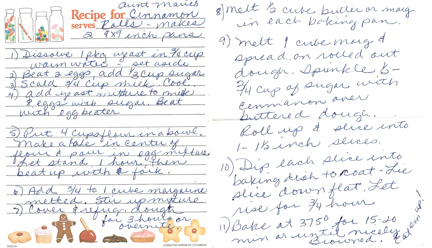 aunt marie's
Recipe for Cinnamon
Rolls - makes
serves 2 9x9 inch pans
1) Dissolve 1 pkg yeast in 1/4 cup
warm water - set aside
2) Beat 2 eggs, add 1/2 cup sugar
3) Scald 3/4 cup milk. Cool.
4) Add yeast mixture to milk
& eggs with sugar. Beat
with egg beater
5) Put 4 cups flour in a bowl.
Make a hole in center of
flour & pour in egg mixture.
Let stand 1 hour, then
beat up with a fork.
6) Add 3/4 to 1 cube margarine
melted. Stir up mixture
7) Cover & refrig dough
for 3 hours or
overnite
8) Melt 1/2 cube butter or marg
in each baking pan.
9) Melt 1 cube marg &
spread on rolled out
dough. Sprinkle 1/2-
3/4 cup of sugar with
cinnamon over
buttered dough.
Roll up & slice into
1 - 1 1/2 inch slices.
10) Dip each slice into
baking dish to coat - lie
slice down flat. Let
rise for 3/4 hour
11) Bake at 375° for 15-20
min or until nicely
browned.